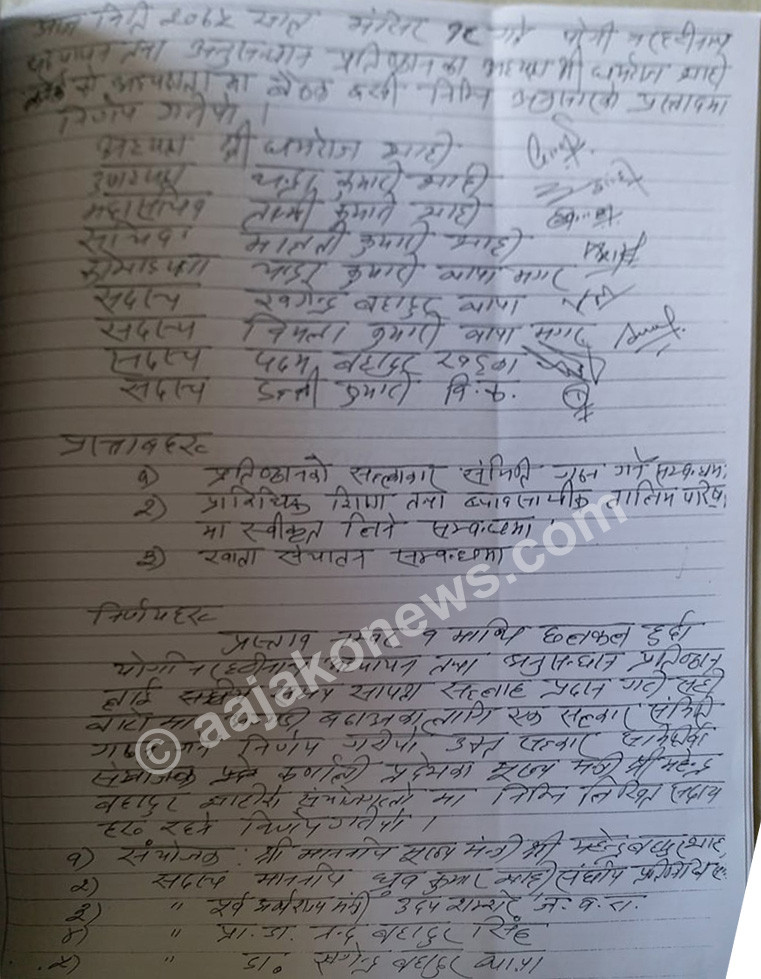 आज मिति २०७५ साल मंसिर १८ गते योगी नरहरीनाथ
अध्यापन तथा अनुसन्धान प्रतिष्ठानका अध्यक्ष श्री धर्मराज शाही
को अध्यक्षता मा बैठक बसी निम्न अनुसारको प्रस्तावमा
निर्णय गरीयो ।
अध्यक्ष श्री धर्मराज शाही
उपाध्यक्ष चन्द्र कुमारी शाही
महासचिव लक्ष्मी कुमारी शाही
सचिव मालती कुमारी शाही
कोषाध्यक्ष चन्द्र कुमारी थापा मगर
सदस्य खगेन्द्र बहादुर थापा
सदस्य विमला कुमारी थापा मगर
सदस्य पदम बहादुर खड्का
सदस्य कुमारी वि.क.
प्रस्तावहरू
१) प्रतिष्ठानको सल्लाकार समिति गठन गर्ने सम्बन्धमा
२) प्राविधिक शिक्षा तथा व्यावसायीक तालिम परिष
मा स्वीकृत लिने सम्बन्धमा
३) खाता संचालन सम्बन्धमा
निर्णयहरू
प्रस्ताव नम्बर १ माथि छलफल हुदाँ
योगी नरहरीनाथ अध्यापन तथा अनुसन्धान प्रतिष्ठान
लाई समय सापेक्ष सल्लाह प्रदान गरी सही
बाटो मा अगाडी बढाउनका लागि एक सल्कार समिति
गठन गर्ने निर्णय गरीयो उक्त सल्कार समितीको
संयोजक कर्णाली प्रदेशका मुख्य मन्त्री श्री महेन्द्र
बहादुर शाहीको संयोजकत्वो मा निम्न लिखित सदस्य
हरू रहने निर्णय गरीयो ।
१) संयोजक : श्री माननीय मुख्य मन्त्री श्री महेन्द्र बहादुर शाही
२) सदस्य माननीय ध्रुव कुमार शाही संघीय प्रतिनिधि स.
३) " पूर्व अर्थराज्य मन्त्री उदय शम्शेर ज.ब.रा.
४) " प्रा.डा. चन्द्र बहादुर सिंह
५) " डा. खगेन्द्र बहादुर थापा
© aajakonews.com